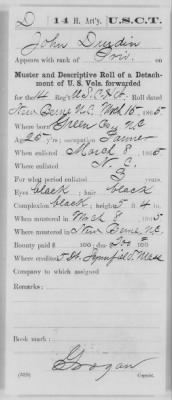 D 14 H. Art'y. U.S.C.T.
John Durdin
Appears with rank of Priv. on
Muster and Descriptive Roll of a Detach-
ment of U. S. Vols. forwarded
for the 14 Reg't U.S.C.H.A. Roll dated
New Berne N.C. Mch 15, 1865
Where born Green Co, N.C.
Age 25 y'rs; occupation Farmer
When enlisted March 8, 1865
Where enlisted N. C.
For what period enlisted 3 years.
Eyes black; hair black
Complexion black; height 5 ft. 4 in.
When mustered in Mch 8, 1865
Where mustered in New Berne N.C.
Bounty paid $ 100; due $ 200
Where credited Lynnfield Mass
Company to which assigned
Remarks:
Book mark:
Grogan
Copyist.